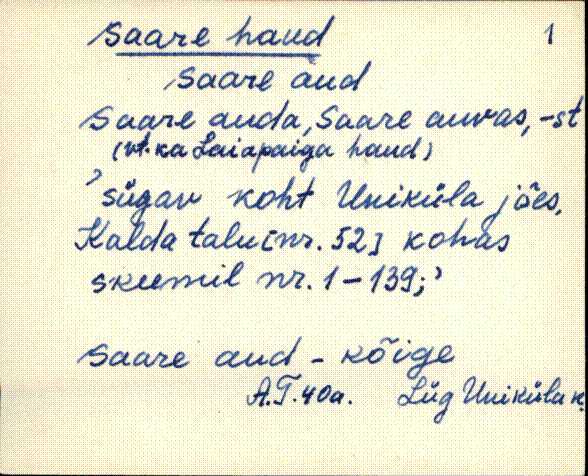 Saare haud 1
Saare aud
Saare auda, Saare auvas, -st
(vt. ka Laiapaiga haud)
'sügav koht Uniküla jões,
Kalda talu [nr. 52] kohas
skeemil nr. 1-139;'
Saare aud - kõige
A.T. 40a. Lüg Uniküla k.